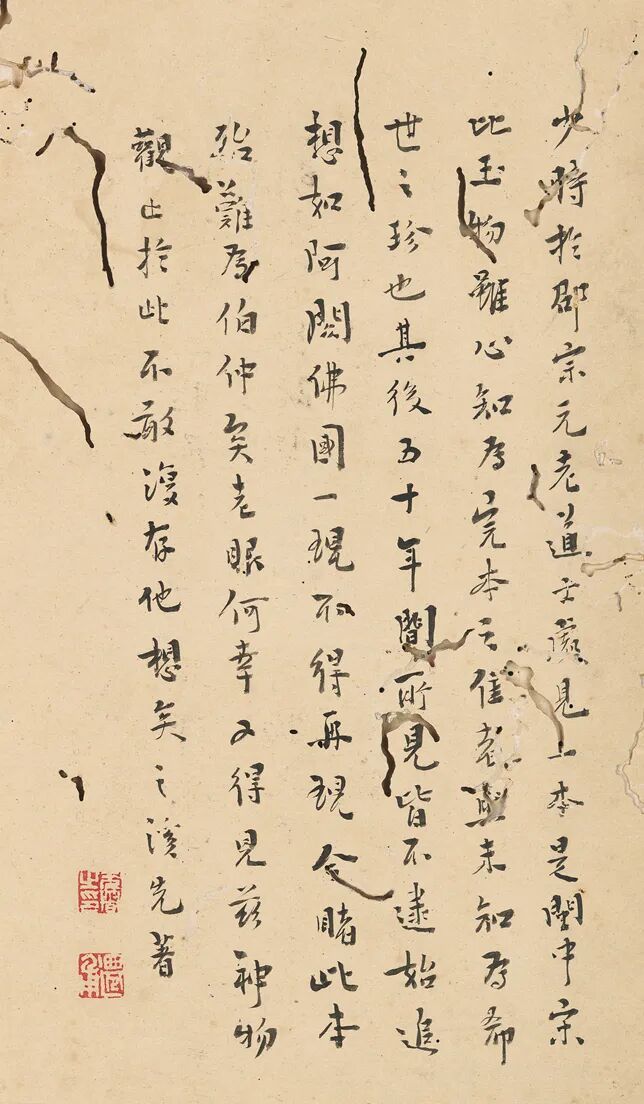 少時於邵宗元老道士處見上本是閩中宋
比玉物雖心知為完本之佳者未知為希
世之珍也其後五十年間所見皆不逮始追
想如阿閦佛國一現不得再現今睹此本
殆難為伯仲矣老眼何幸又得見茲神物
觀止於此不敢復存他想矣之溪先著